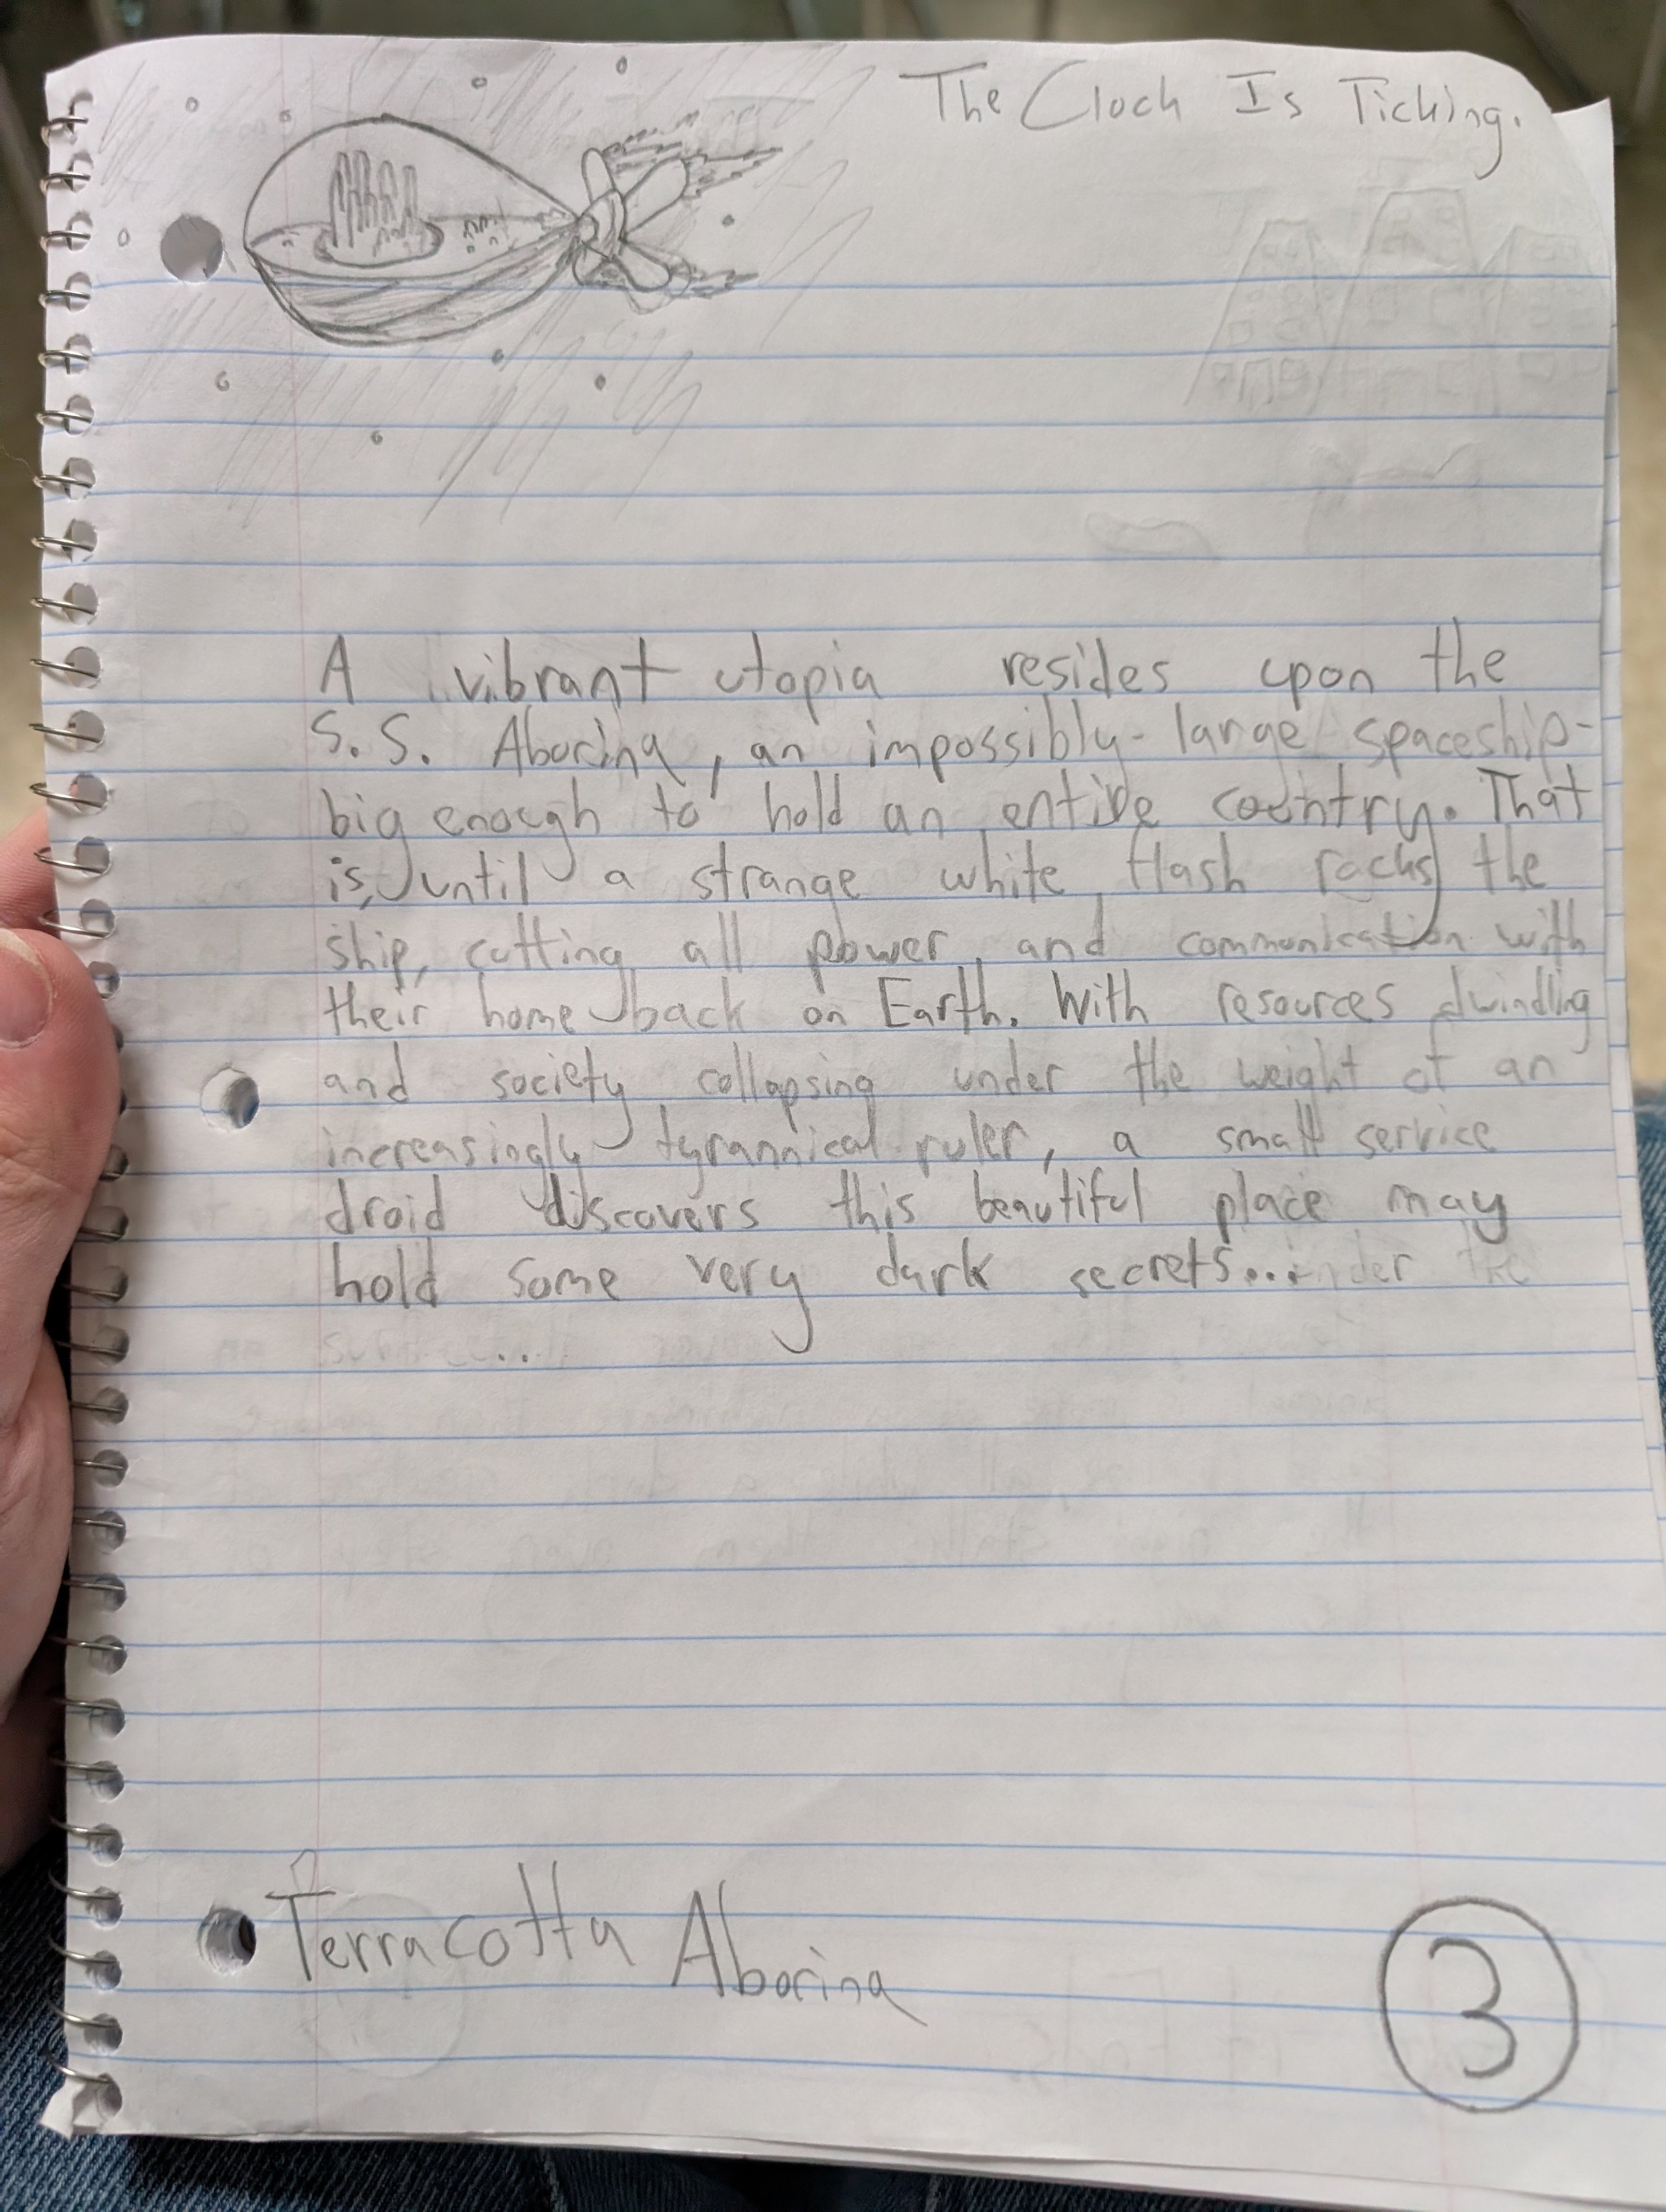 The Clock Is Ticking.
A vibrant utopia resides upon the
S.S. Aborina, an impossibly-large spaceship-
big enough to hold an entire country. That
is, until a strange white flash racks the
ship, cutting all power and communication with
their home back on Earth. With resources dwindling
and society collapsing under the weight of an
increasingly tyrannical ruler, a small service
droid discovers this beautiful place may
hold some very dark secrets...
Terracotta Aborina
3